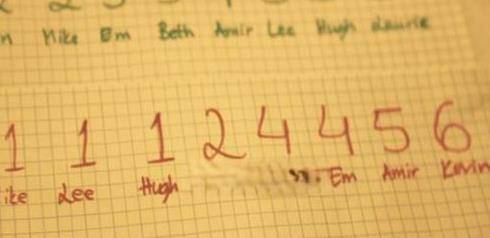 Mike Em Beth Amir Lee Hugh Laurie
1 1 1 2 4 4 5 6
Lee Hugh Em Amir Kevin